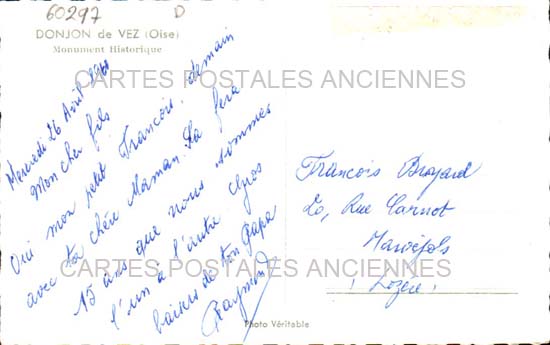 60297 D
DONJON de VEZ (Oise)
Monument Historique
CARTES POSTALES ANCIENNES
Mercredi 26 Avril 1961
Mon cher fils
Oui mon petit Francois, demain
avec ta chère Maman. Ça fera
15 ans que nous sommes
l'un à l'autre Gros
baisers de ton Papa
Raymond
Francois Brojard
20, Rue Carnot
Marvejols
(Lozère)
CARTES POSTALES ANCIENNES
Photo Véritable